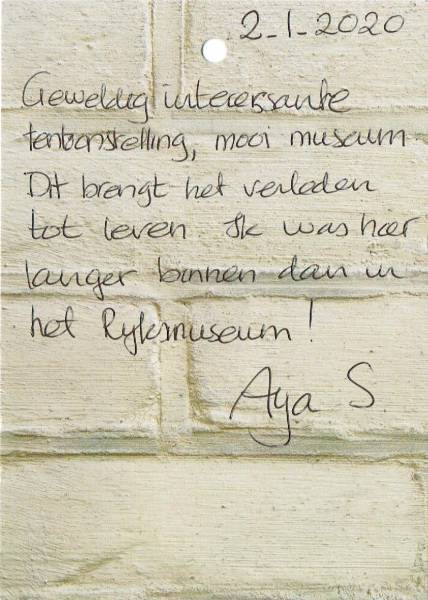 2-1-2020
Geweldig interessante
tentoonstelling, mooi museum
Dit brengt het verleden
tot leven Ik was hier
langer binnen dan in
het Rijksmuseum!
Aya S